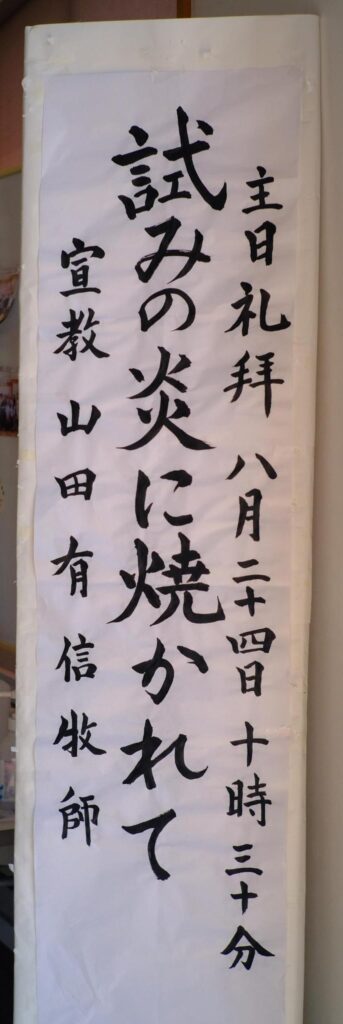 主日礼拝 八月二十四日 十時三十分
試みの炎に焼かれて
宣教 山田有信牧師